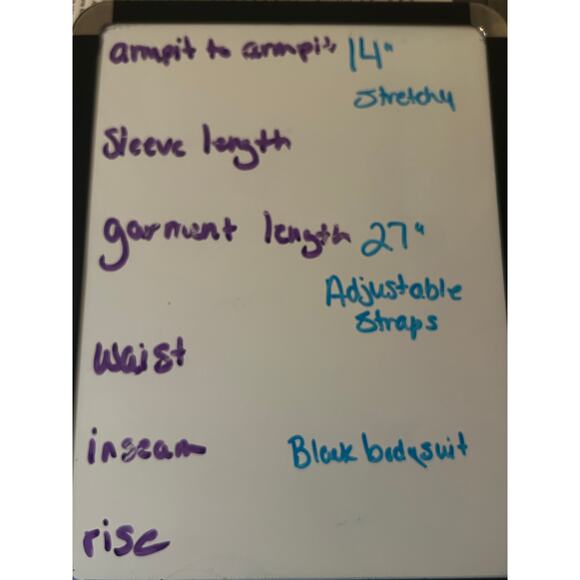 armpit to armpit 14"
Stretchy
Sleeve length
garment length 27"
Adjustable
Straps
Waist
inseam
Black bodysuit
rise